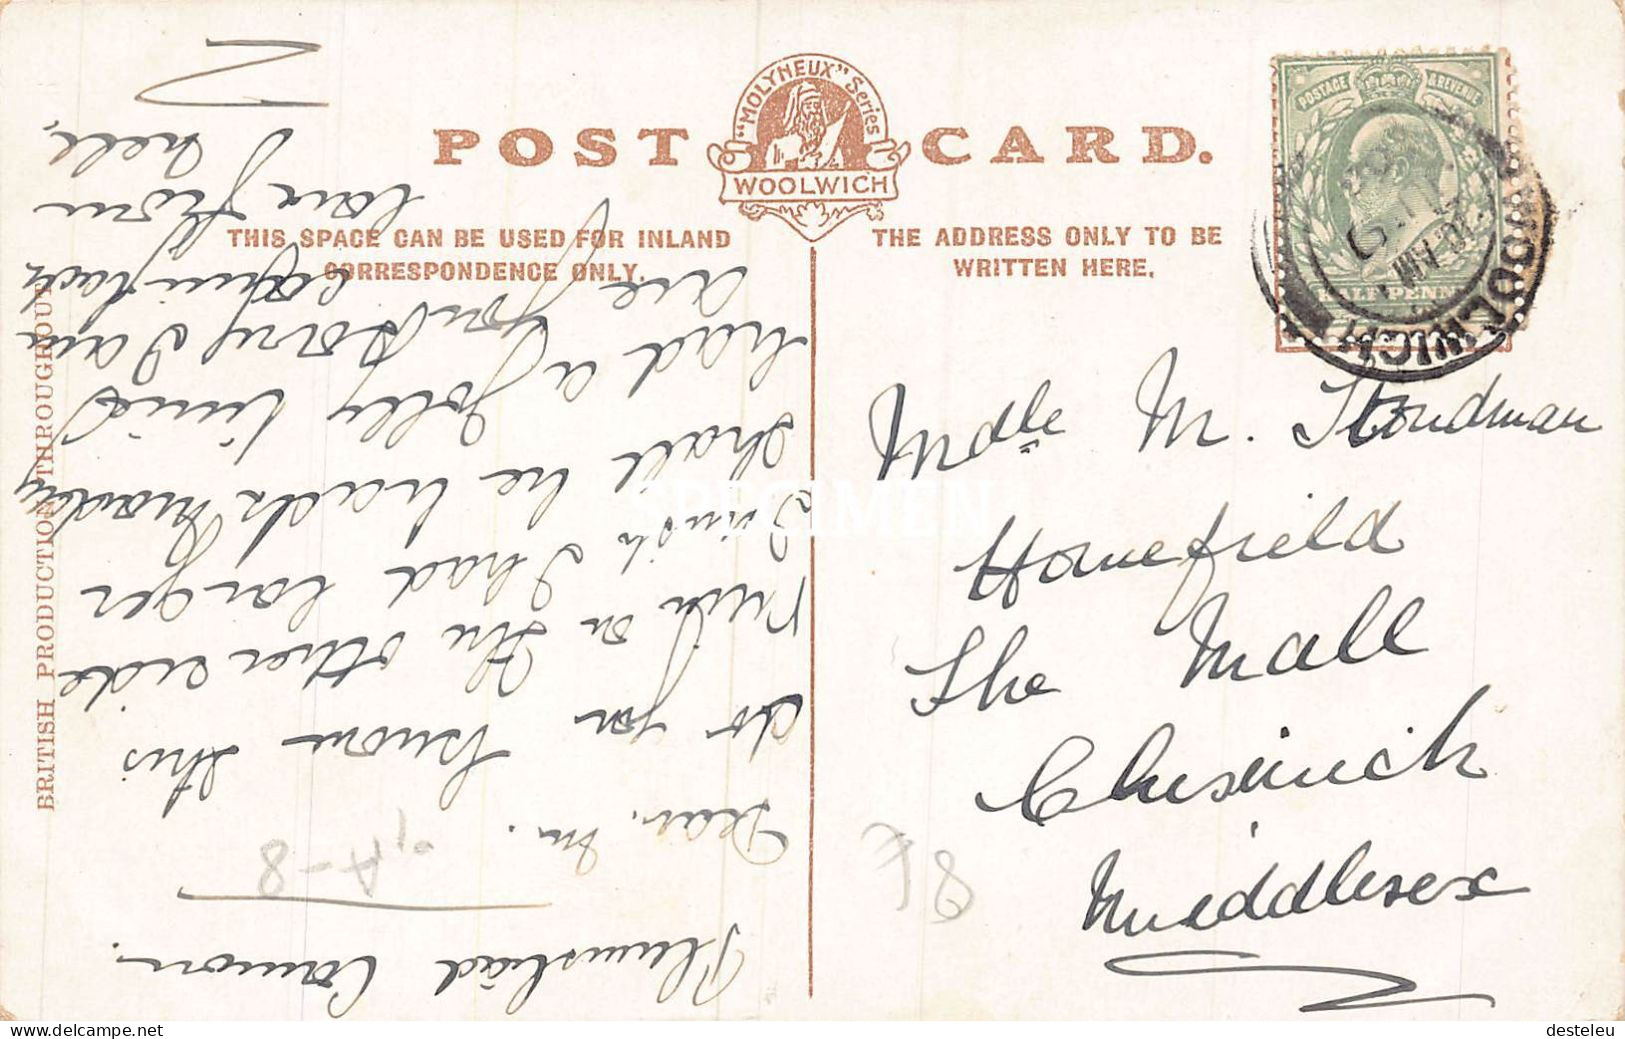 "MOLYNEUX" Series
WOOLWICH
POST CARD.
THIS SPACE CAN BE USED FOR INLAND
CORRESPONDENCE ONLY.
THE ADDRESS ONLY TO BE
WRITTEN HERE.
BRITISH PRODUCTION THROUGHOUT
POSTAGE & REVENUE
HALFPENNY
WOOLWICH
Mdlle M. Stondman
Homefield
The Mall
Chiswick
Middlesex
Plumstead Common.
Dear. M.
do you know this
pich on the other side
I had longer
think
shall be back Monday
had a jolly time
are you sorry I am
coming back
love from
Nell.
SPECIMEN
desteleu
https://www.delcampe.net